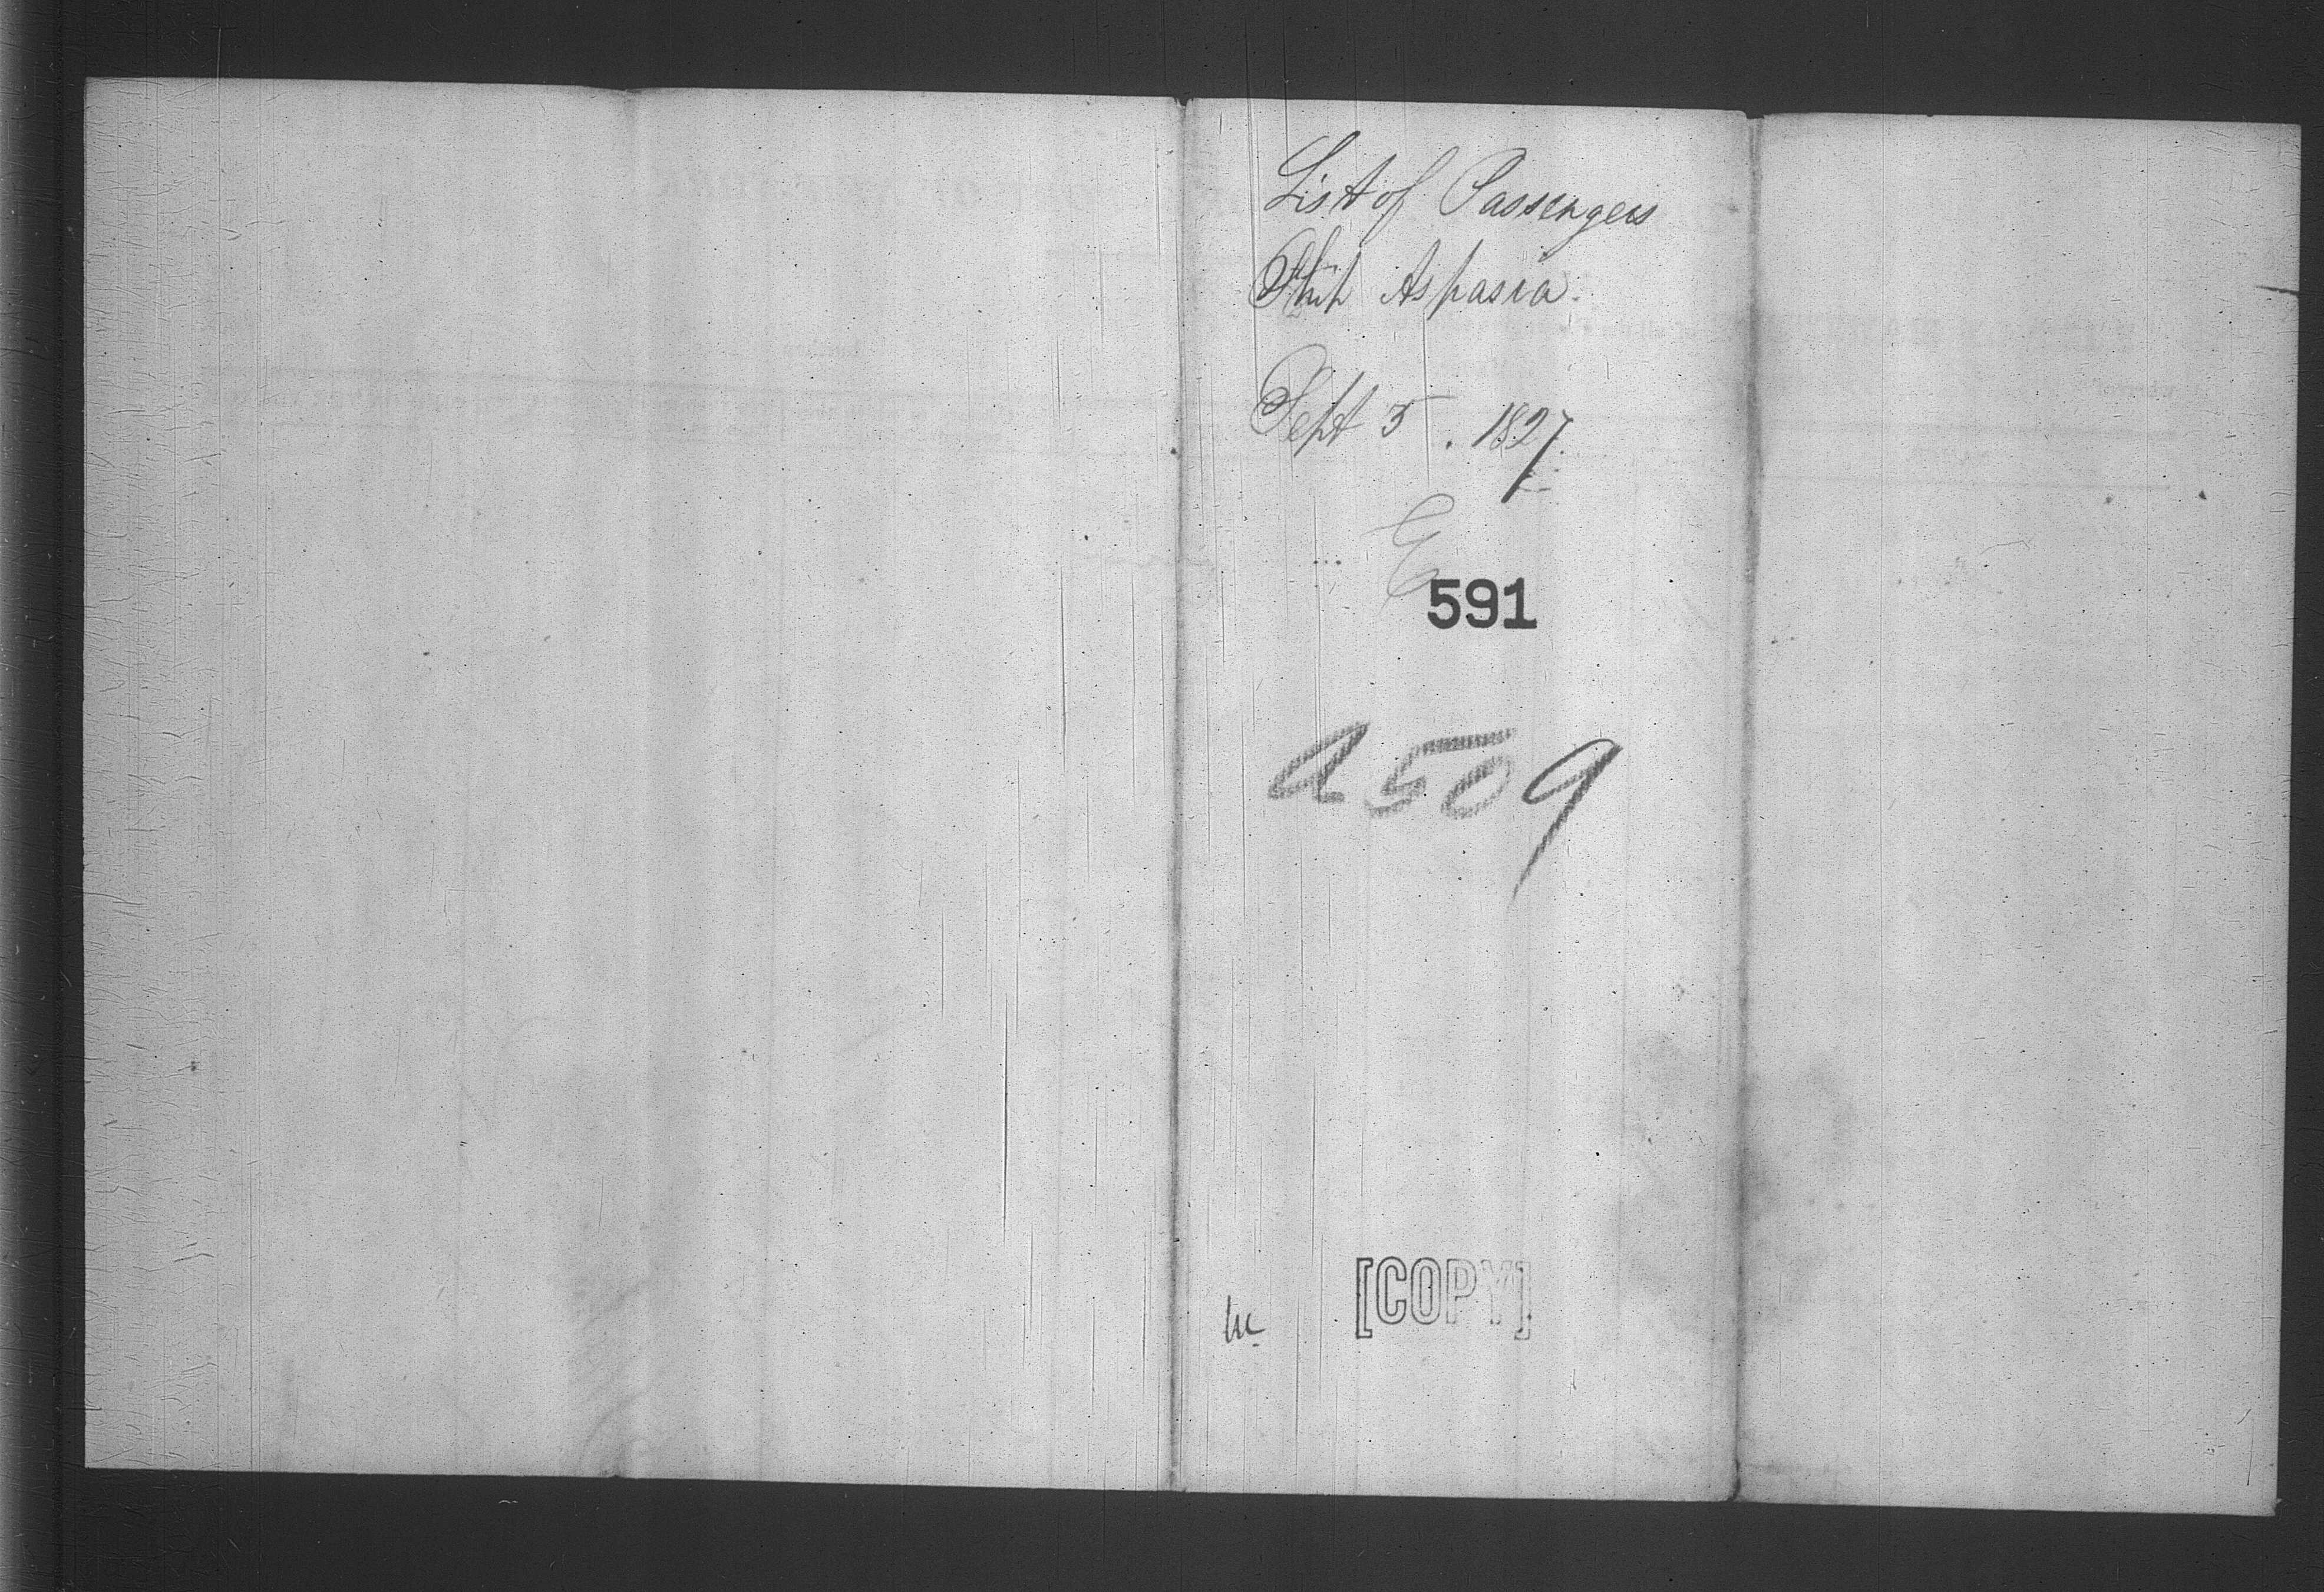 List of Passengers
Ship Aspasia.
Sept 5. 1827.
E
591
a 509
[COPY]